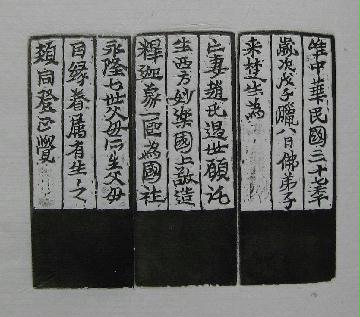 唯中華民國三十七年
歲次戊子臘八日佛弟子
来楚生為
亡妻趙氏過世願託
生西方妙樂國土敬造
釋迦象一區為國社
永隆七世父母所生父母
因緣眷属有生之
類同登正覺